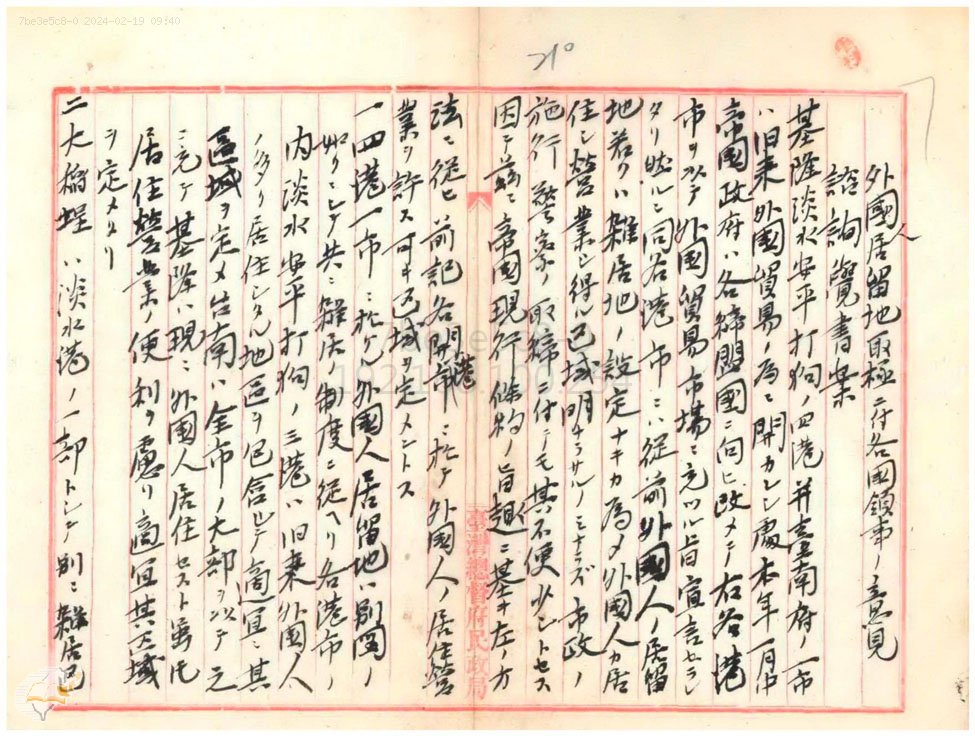 7be3e5c8-0 2024-02-19 09:40
外國人居留地取極ニ付各國領事ノ意見
諮詢覺書案
基隆淡水安平打狗ノ四港并臺南府ノ一市
ハ旧来外國貿易ノ為ニ開カレシ處本年一月中
帝國政府ハ各締盟國ニ向ヒ改メテ右各港
市ヲ以テ外国貿易市場ニ充ツル旨宣言セラレ
タリ然ルニ同各港市ニハ従前外國人ノ居留
地若クハ雑居地ノ設定ナキカ為メ外國人カ居
住シ營業シ得ル区域明ナラサルノミナラズ市政ノ
施行警察ノ取締ニ付テモ其不便少シトセス
因テ茲ニ帝國現行條約ノ旨趣ニ基キ左ノ方
法ニ従ヒ前記各開港市ニ於テ外國人ノ居住營
業ヲ許ス可キ区域ヲ定メントス
一四港一市ニ於ケル外國人居留地ハ別図ノ
如クニシテ共ニ雑居ノ制度ニ従ヘリ各港市ノ
内淡水安平打狗ノ三港ハ旧来外國人
ノ多ク居住シタル地區ヲ包含シテ適宜ニ其
區域ヲ定メ台南ハ全市ノ大部ヲ以テ之
ニ充テ基隆ハ現ニ外國人居住セスト雖モ
居住營業ノ便利ヲ慮リ適宜其区域
ヲ定メタリ
二大稲埕ハ淡水港ノ一部トシテ別ニ雑居区
臺灣總督府民政局